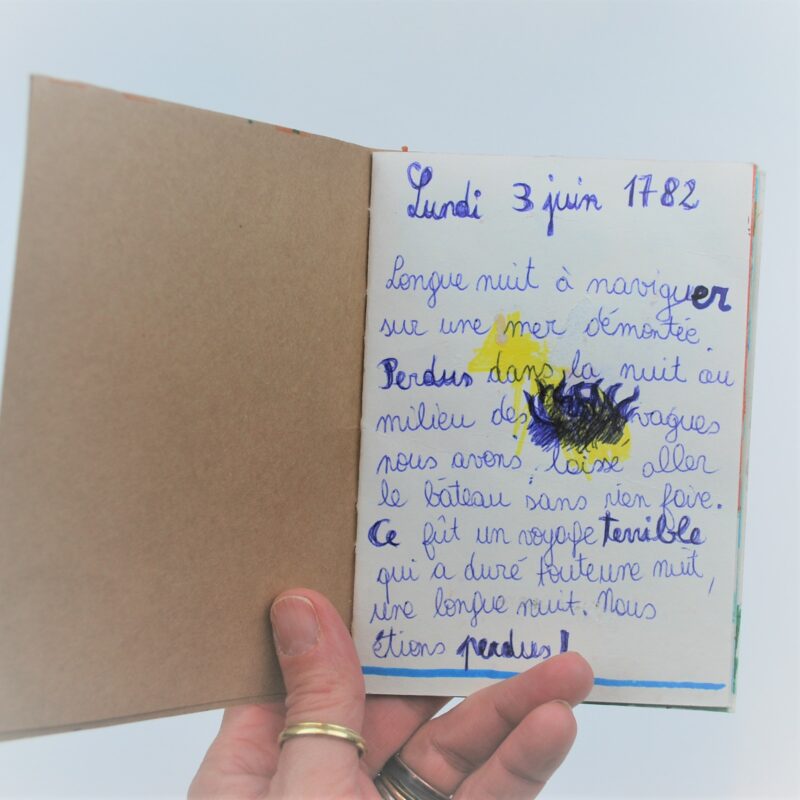 Lundi 3 juin 1782
Longue nuit à naviguer
sur une mer démontée.
Perdus dans la nuit au
milieu des vagues
nous avons laissé aller
le bâteau sans rien faire.
Ce fût un voyage terrible
qui a duré toute une nuit,
une longue nuit. Nous
étions perdus!